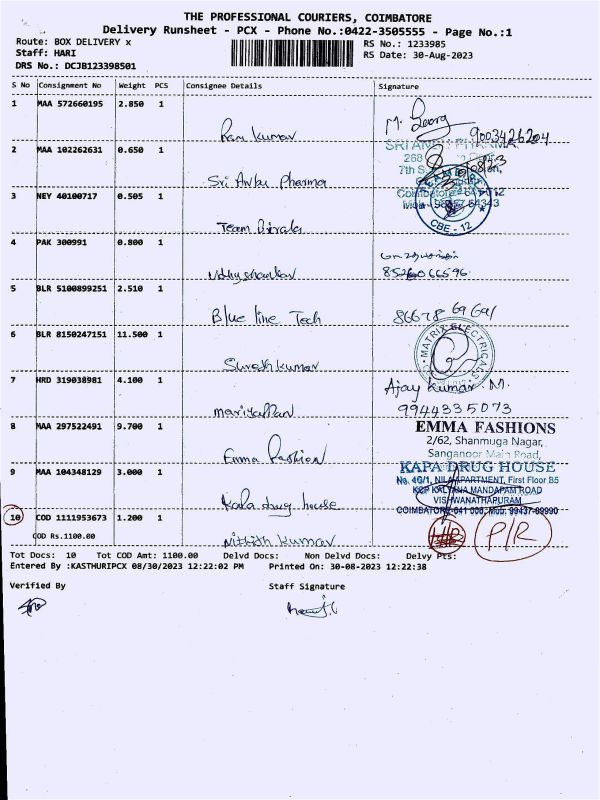 THE PROFESSIONAL COURIERS, COIMBATORE
Delivery Runsheet - PCX - Phone No.:0422-3505555 - Page No.:1
Route: BOX DELIVERY x
RS No.: 1233985
Staff: HARI
RS Date: 30-Aug-2023
DRS No.: DCJB123398501
S No Consignment No Weight PCS Consignee Details Signature
1 MAA 572660195 2.850 1
Ram kumar
M. Georg
9003426204
2 MAA 102262631 0.650 1
268
7th S
Sri Anbu Pharma
3 NEY 40100717 0.505 1
Coimbatore
CBE - 12
Team
4 PAK 300991 0.800 1
8526066596
5 BLR 5100899251 2.510 1
Blue line Tech
86678 69691
6 BLR 8150247151 11.500 1
MATRIX ELECTRICALS
Suresh kumar
7 HRD 319038981 4.100 1
Ajay Kumar. M.
mariyappan
9944335073
8 MAA 297522491 9.700 1
EMMA FASHIONS
2/62, Shanmuga Nagar,
Sanganoor Main Road,
Emma Fashion
9 MAA 104348129 3.000 1
KAPA DRUG HOUSE
No. 4G/1, NILA APARTMENT, First Floor B5
KGP KALYANA MANDAPAM ROAD
VISHWANATHAPURAM
COIMBATORE-641 006, Mob: 99437-89990
Kapa drug house
10 COD 1111953673 1.200 1
P/R
COD Rs.1100.00
Nithish kumar
Tot Docs: 10 Tot COD Amt: 1100.00 Delvd Docs: Non Delvd Docs: Delvy Pts:
Entered By :KASTHURIPCX 08/30/2023 12:22:02 PM Printed On: 30-08-2023 12:22:38
Verified By Staff Signature